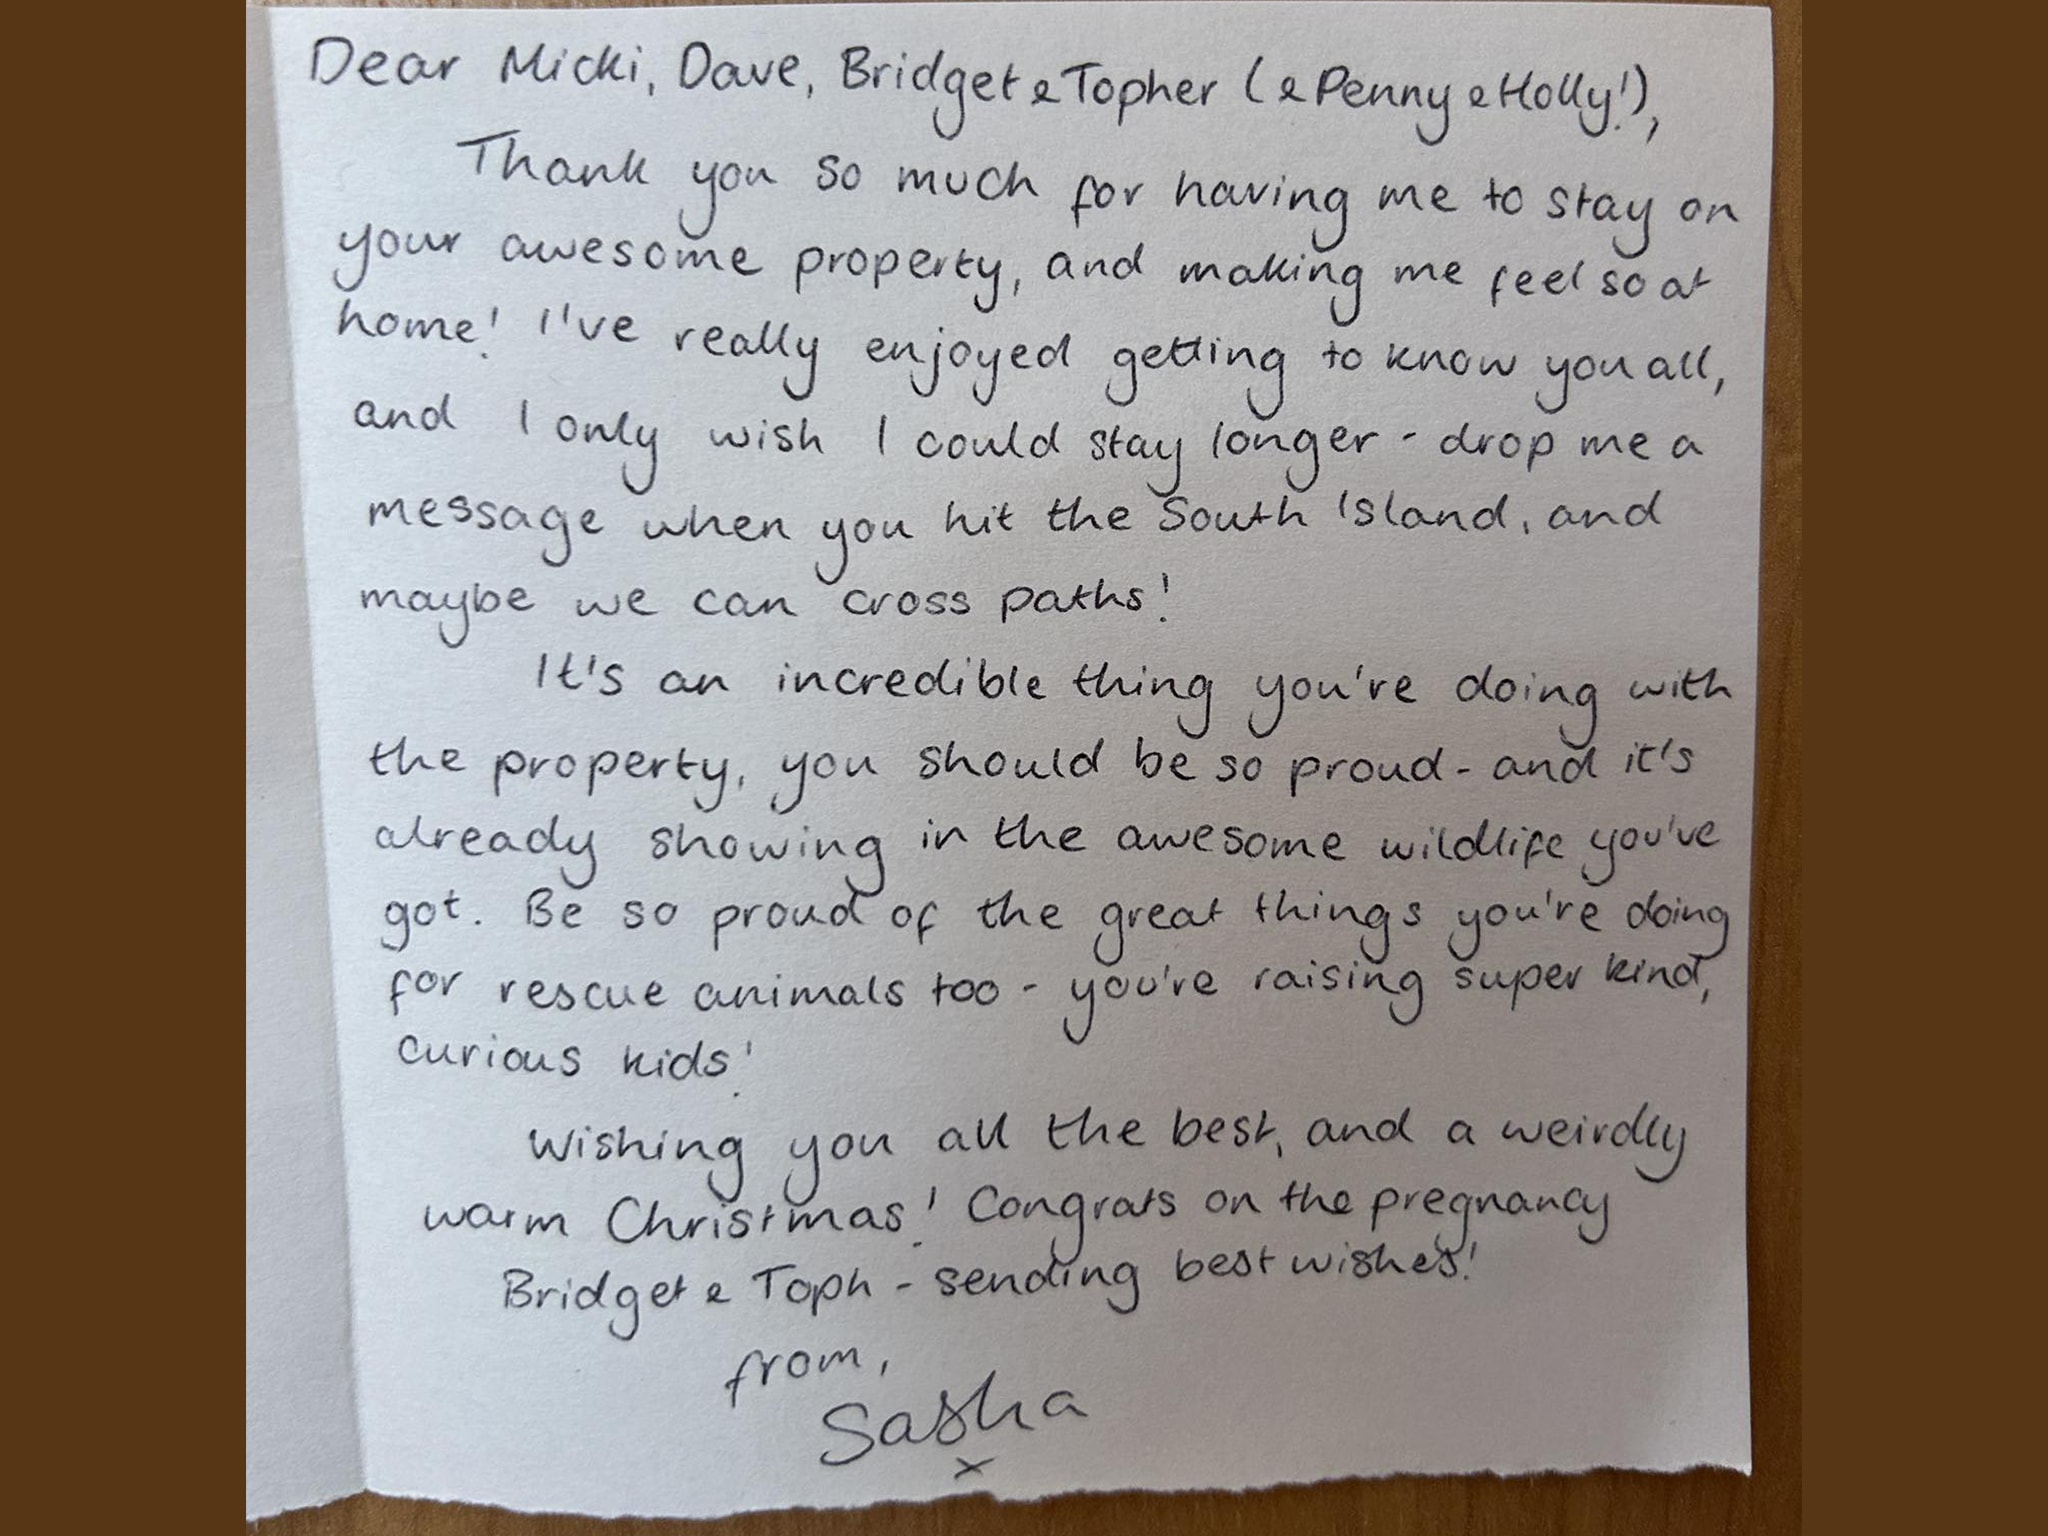 Dear Micki, Dave, Bridget & Topher (& Penny & Holly!),
Thank you so much for having me to stay on
your awesome property, and making me feel so at
home! I've really enjoyed getting to know you all,
and I only wish I could stay longer - drop me a
message when you hit the South Island, and
maybe we can cross paths!
It's an incredible thing you're doing with
the property, you should be so proud - and it's
already showing in the awesome wildlife you've
got. Be so proud of the great things you're doing
for rescue animals too - you're raising super kind,
curious kids!
Wishing you all the best, and a weirdly
warm Christmas! Congrats on the pregnancy
Bridget & Toph - sending best wishes!
from,
Sasha
x